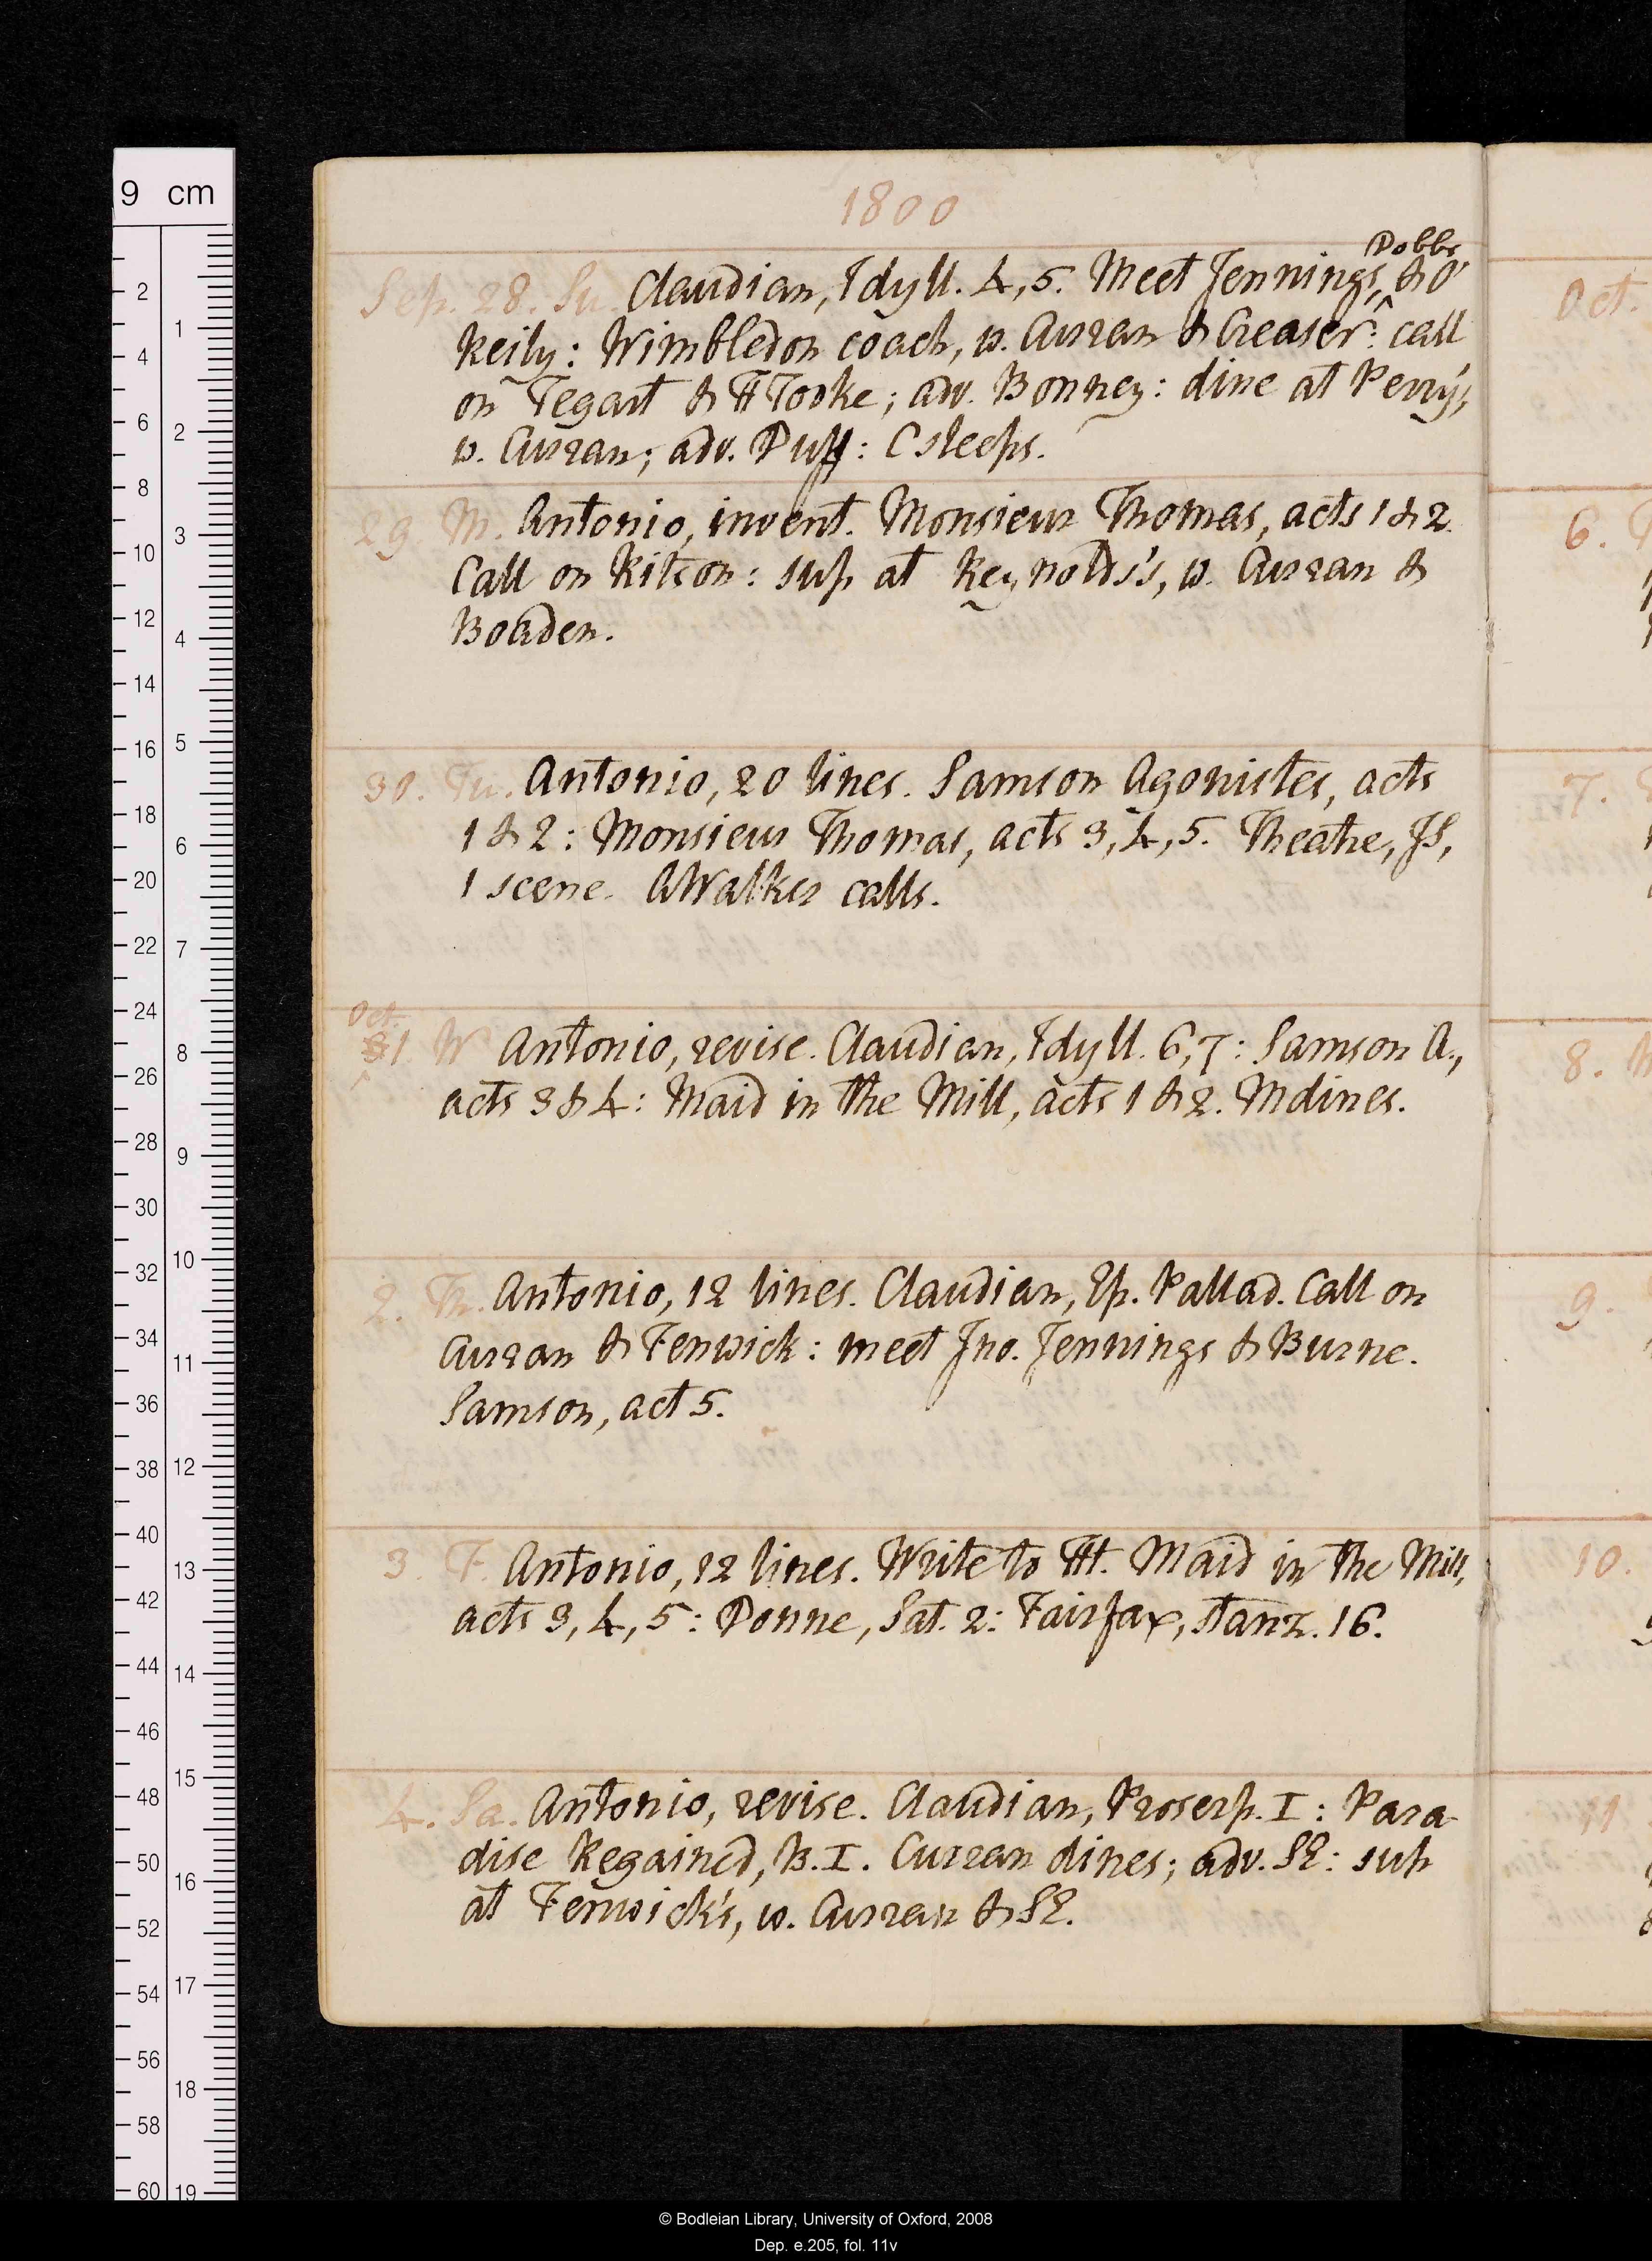 1800
Sep. 28. Su. Claudian, Idyll. 4, 5. Meet Jennings, Dobbs & O'
Keily: Wimbledon coach, w. Curran & Greaser: call
on Tegart & H Tooke; adv. Bonney: dine at Perry's,
w. Curran; adv. Puff: C sleeps.
29. M. Antonio, invent. Monsieur Thomas, acts 1 & 2.
Call on Ritson: sup at Reynolds's, w. Curran &
Boaden.
30. Tu. Antonio, 20 lines. Samson Agonistes, acts
1 & 2: Monsieur Thomas, acts 3, 4, 5. Theatre, JS,
1 scene. A Walker calls.
Oct.
1. W Antonio, revise. Claudian, Idyll. 6, 7: Samson A.,
acts 3 & 4: Maid in the Mill, acts 1 & 2. M dines.
2. Th. Antonio, 12 lines. Claudian, Ep. Pallad. Call on
Curran & Fenwick: meet Jno. Jennings & Burne.
Samson, act 5.
3. F. Antonio, 12 lines. Write to Ht. Maid in the Mill,
acts 3, 4, 5: Donne, Sat. 2: Fairfax, stanz. 16.
4. Sa. Antonio, revise. Claudian, Proserp. I: Para-
dise Regained, B. I. Curran dines; adv. SE: sup
at Fenwick's, w. Curran & SE.
Oct.
6.
7.
8.
9.
10.
11
9 cm
2
4
6
8
10
12
14
16
18
20
22
24
26
28
30
32
34
36
38
40
42
44
46
48
50
52
54
56
58
60
1
2
3
4
5
6
7
8
9
10
11
12
13
14
15
16
17
18
19
© Bodleian Library, University of Oxford, 2008
Dep. e.205, fol. 11v